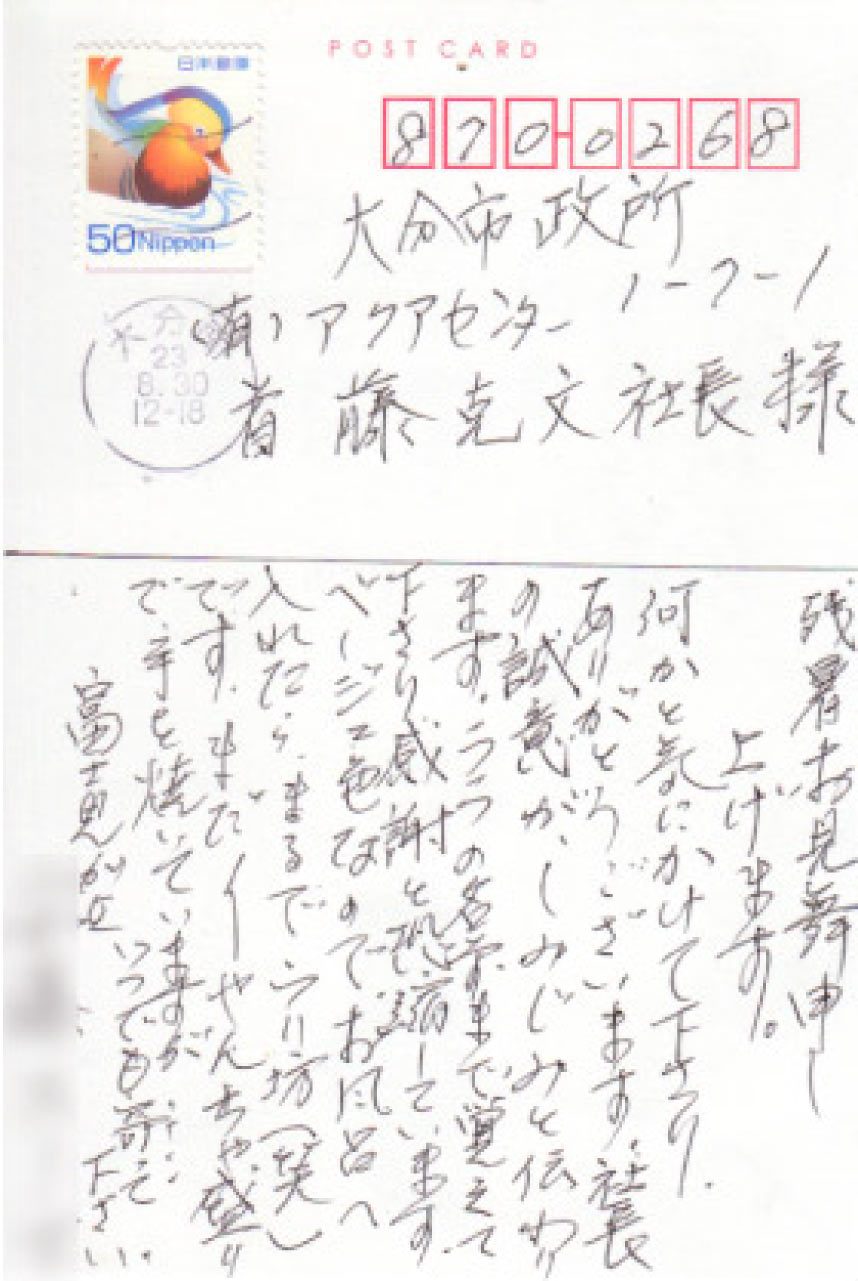 POST CARD
日本郵便
50 Nippon
870-0268
大分市政所
1-7-1
(有)アクアセンター
首藤克文社長様
大分
23
8.30
12-18
残暑お見舞申し
上げます。
何かと気にかけて下さり、
ありがとうございます。社長
の誠意が、しみじみと伝わり
ます。ララの名前まで覚えて
下さり感謝と恐縮しています。
ベージュ色なのでお風呂へ
入れたら、まるで坊(笑)
です。まだまだやんちゃ盛り
で手を焼いていますが
いつでも寄って下さい。
富士見が丘